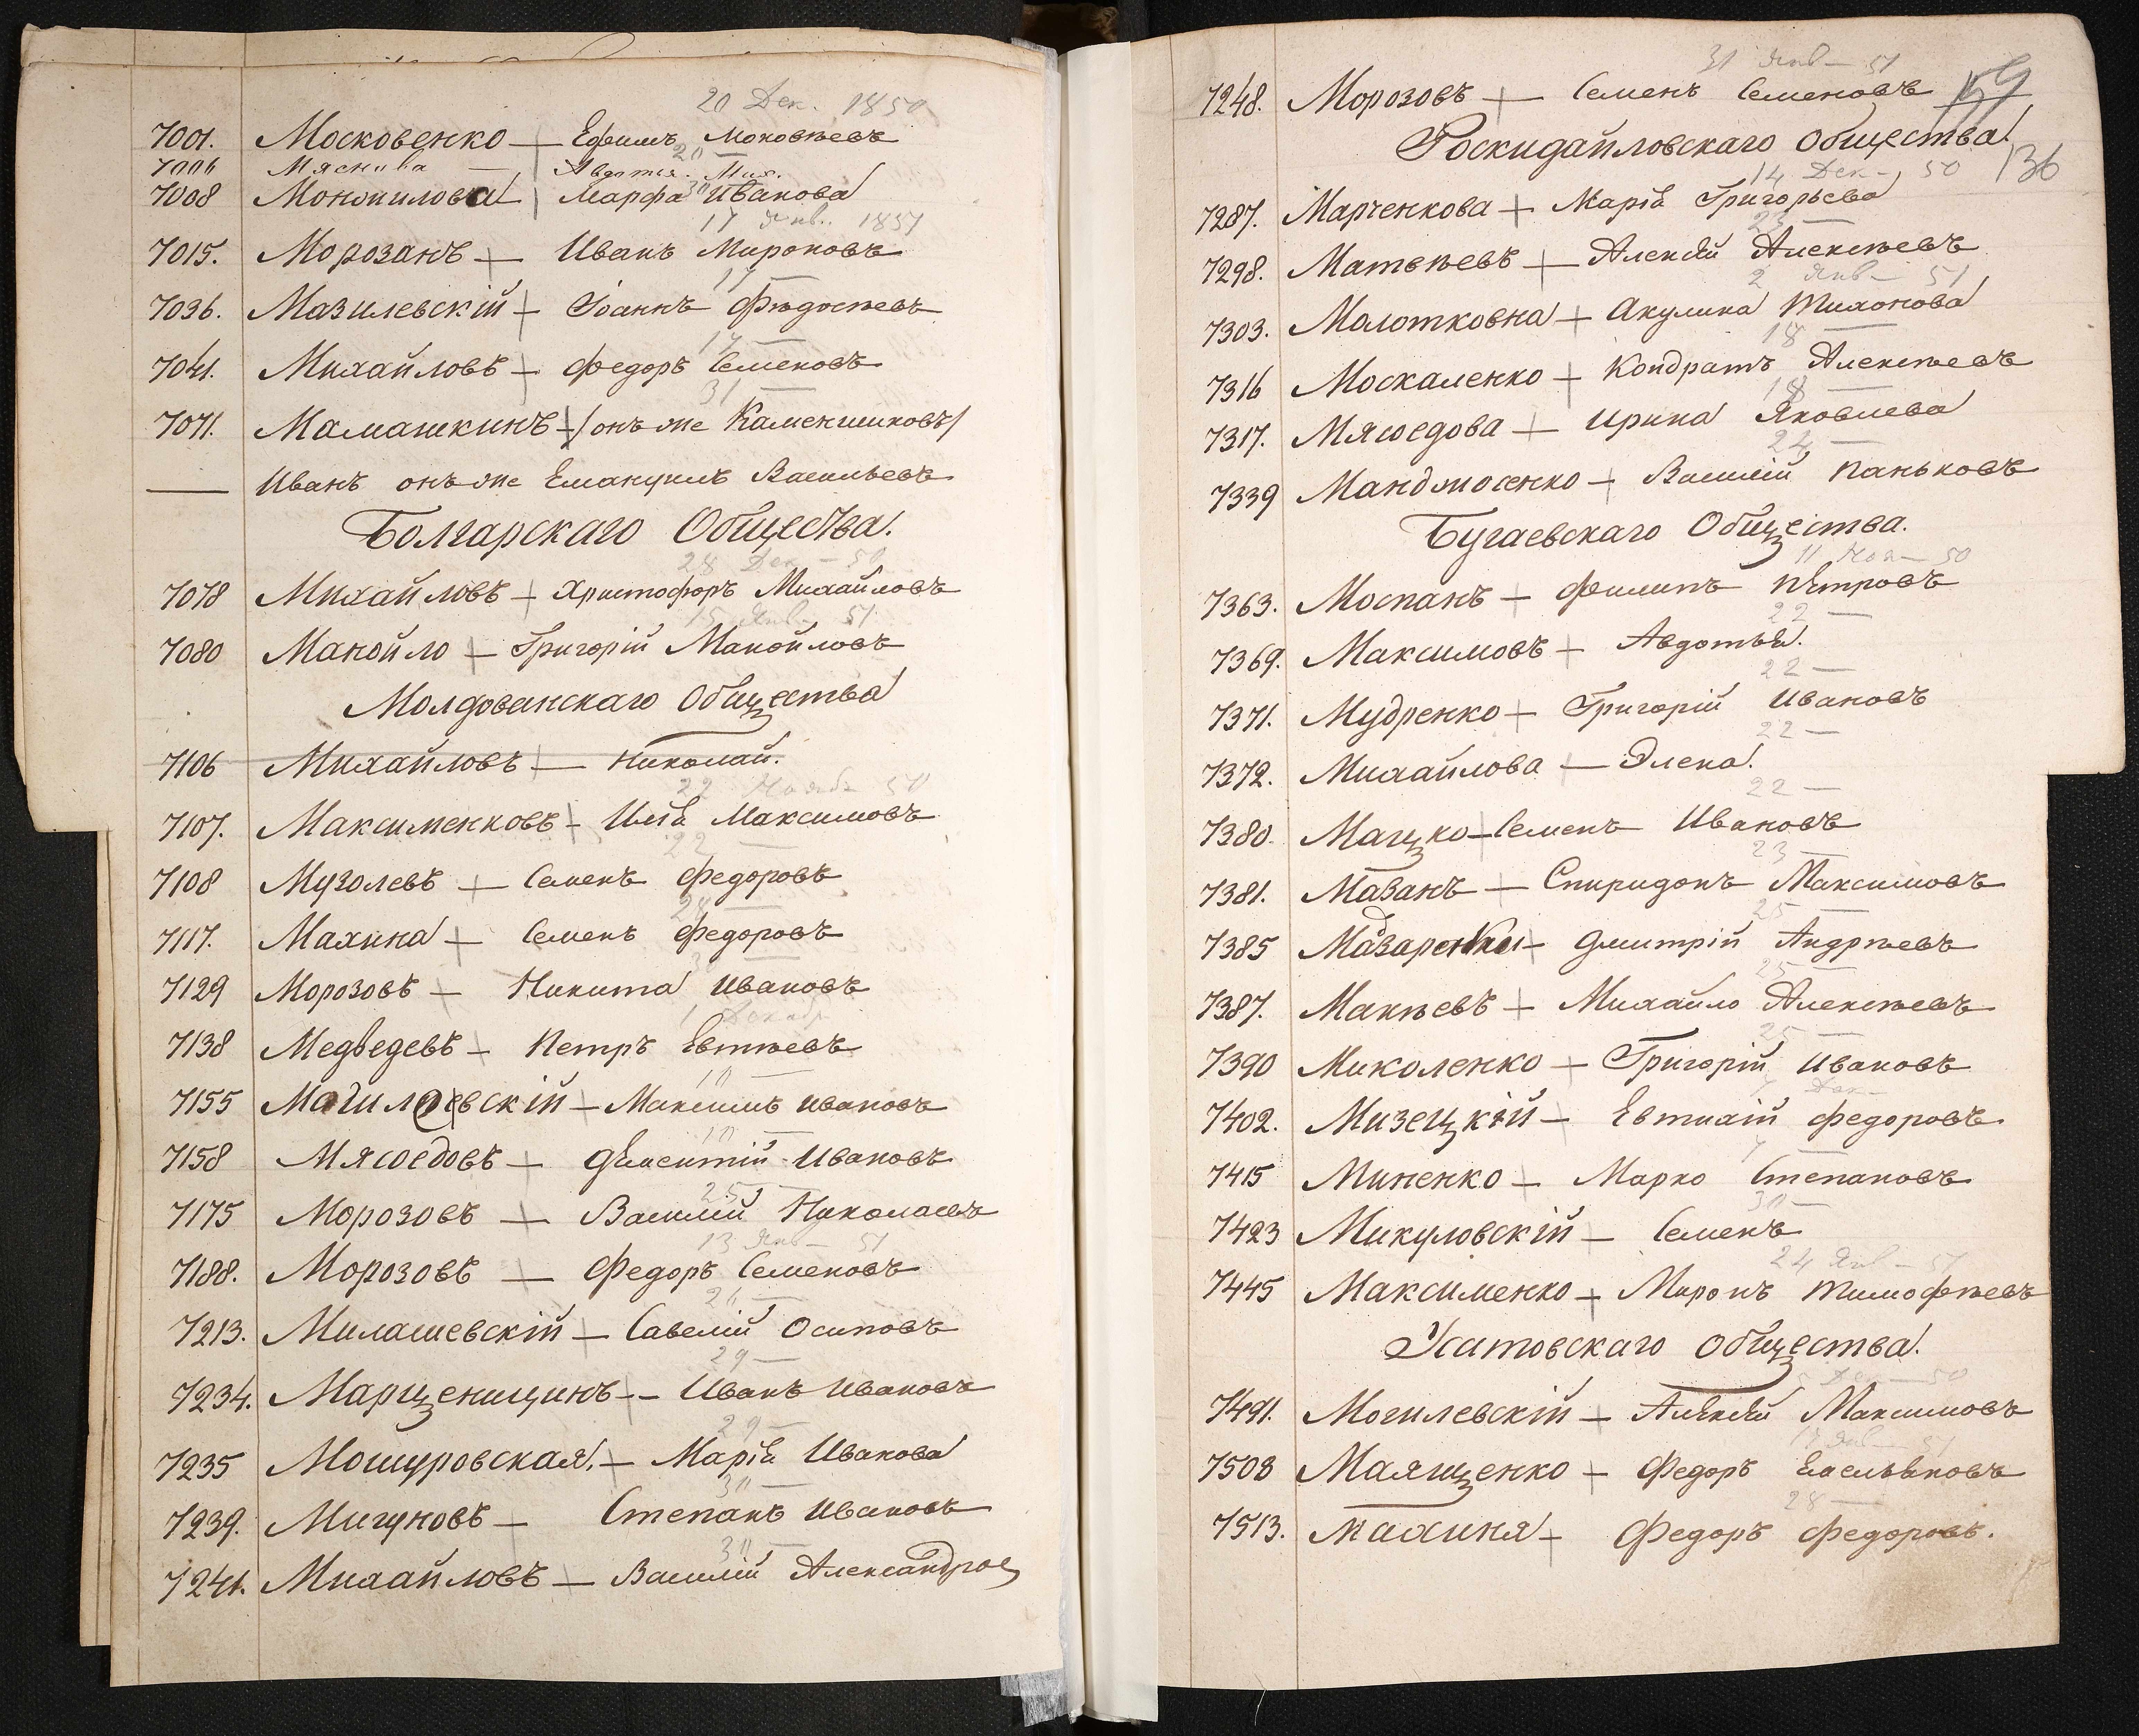 20 Дек. 1850
7001. Московенко — Ефимъ Моковѣевъ
20 —
7006 Мяснива — Авдотья. Мих.
30
7008 Монопилова Марфа Иванова
17 Янв. 1851
7015. Морозанъ — Иванъ Мироновъ
17 —
7036. Мазилевскій — Іоаннъ Фѣдосѣевъ
17 —
7041. Михайловъ — Федоръ Семеновъ
31 —
7071. Мамашкинъ — /онъ же Каменщиковъ/
— Иванъ онъ же Емануилъ Васильевъ
Болгарскаго Общества.
28 Дек — 50
7078 Михайловъ — Христофоръ Михайловъ
15 Янв — 51
7080 Манойло — Григорій Манойловъ
Молдованскаго Общества
7106 Михайловъ — Николай.
22 Ноябр 50
7107. Максименковъ — Илія Максимовъ
22 —
7108 Музолевъ — Семенъ Федоровъ
28 —
7117. Махина — Семенъ Федоровъ
7129 Морозовъ — Никита Ивановъ
1 Декабр
7138 Медведевъ — Петръ Евтѣевъ
10 —
7155 Магилевскій — Максимъ Ивановъ
10 —
7158 Мясоедовъ — Дѣментій Ивановъ
25 —
7175 Морозовъ — Василій Николаевъ
13 Янв — 51
7188. Морозовъ — Федоръ Семеновъ
26 —
7213. Милашевскій — Савелій Осиповъ
29 —
7234. Марценищинъ — Иванъ Ивановъ
29 —
7235 Мошуровская. — Марія Иванова
30 —
7239. Мигуновъ — Степанъ Ивановъ
30 —
7241. Михайловъ — Василій Александров
31 Янв — 51
7248. Морозовъ — Семенъ Семеновъ
Роскидайловскаго Общества
136
14 Дек — 50
7287. Марченкова — Марія Григорьева
23 —
7298. Матвѣевъ — Алексѣй Алексѣевъ
2 Янв — 51
7303. Молотковна — Акулина Тихонова
18 —
7316 Москаленко — Кондратъ Алексѣевъ
18 —
7317. Мясоедова — Ирина Яковлева
24 —
7339 Мандмосенко — Василій Паньковъ
Бугаевскаго Общества.
11 Ноя — 50
7363. Моспанъ — Филипъ Пѣтровъ
22 —
7369. Максимовъ — Авдотья.
22 —
7371. Мудренко — Григорій Ивановъ
22 —
7372. Михайлова — Элена.
22 —
7380. Мацко — Семенъ Ивановъ
23 —
7381. Мазанъ — Спиридонъ Максимовъ
25 —
7385 Мазаренки — Дмитрій Андрѣевъ
25 —
7387. Макѣевъ — Михайло Алексѣевъ
25 —
7390 Миколенко — Григорій Ивановъ
7 Дек —
7402. Мизецкій — Евтихій Федоровъ
7 —
7415 Миненко — Марко Степановъ
30 —
7423 Микуловскій — Семенъ
24 Янв — 51
7445 Максименко — Миронъ Тимофѣевъ
Усатовскаго Общества.
5 Дек — 50
7491. Могилевскій — Алѣксѣй Максимовъ
13 Янв — 51
7508 Малященко — Федоръ Емельяновъ
28 —
7513. Махиня — Федоръ Федоровъ.